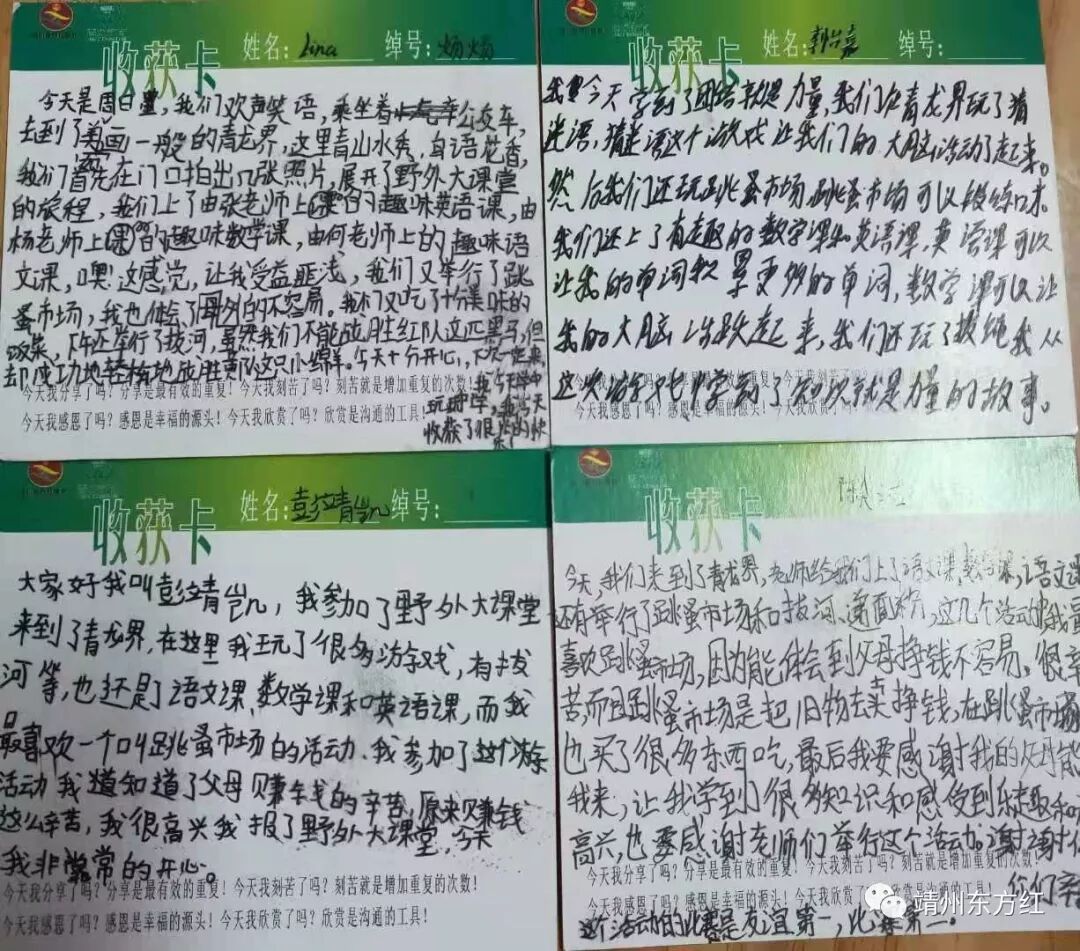 收获卡 姓名：Lina 绰号：
今天是周日，我们欢声笑语，乘坐着公交车，
去到了画一般的青龙界，这里青山水秀，鸟语花香，
我们首先在门口拍出几张照片，展开了野外大课堂
的旅程，我们上了由张老师上课的趣味英语课，由
杨老师上课的趣味数学课，由何老师上的趣味语
文课，噢！这感觉，让我受益匪浅，我们又举行了跳
蚤市场，我也体会了母的不容易。我们又吃了十分美味的
饭菜，下午还举行了拔河，虽然我们不能战胜红队这匹黑马，但
却成功地轻松地战胜黄队这只小绵羊。今天十分开心，
今天我分享了吗？分享是最有效的重复！今天我刻苦了吗？刻苦就是增加重复的次数！
今天我感恩了吗？感恩是幸福的源头！今天我欣赏了吗？欣赏是沟通的工具！
玩中学，我今天
收获了很多的快
乐！
收获卡 姓名： 绰号：
我今天学到了团结就是力量，我们在青龙界玩了猜
迷语，猜迷语这个游戏让我们的大脑活动了起来。
然后我们还玩跳蚤市场，跳蚤市场可以锻练口才。
我们还上了有趣的数字课和英语课，英语课可以
让我的单词积累更多的单词，数字课可以让
我的大脑活跃起来，我们还玩了拔绳我从
这次游戏中学到了知识就是力量的故事。
今天我感恩了吗？感恩是幸福的源头！今天我欣赏了吗？欣赏是沟通的工具！
收获卡 姓名：彭靖凯 绰号：
大家好我叫彭靖凯，我参加了野外大课堂
来到了青龙界，在这里我玩了很多游戏，有拔
河等，也还是了语文课、数学课和英语课，而我
最喜欢一个叫跳蚤市场的活动、我参加了这个游
活动我道知道了父母赚钱的辛苦，原来赚钱
这么辛苦，我很高兴我报了野外大课堂，今天
我非常的开心。
今天我分享了吗？分享是最有效的重复！今天我刻苦了吗？刻苦就是增加重复的次数！
今天我感恩了吗？感恩是幸福的源头！今天我欣赏了吗？欣赏是沟通的工具！
收获卡
今天，我们来到了青龙界，老师给我们上了语文课，数学课，语文课
还有举行了跳蚤市场和拔河，这几个活动我最
喜欢跳蚤市场，因为能体会到父母挣钱不容易。很辛
苦，而且跳蚤市场是把旧物去卖挣钱，在跳蚤市场
也买了很多东西吃，最后我要感谢我的父母能
我来，让我学到了很多知识和感受到乐趣和
高兴，也要感谢老师们举行这个活动。谢谢
你们
今天我分享了吗？分享是最有效的重复！今天我刻苦了吗？刻苦就是增加重复的次数！
今天我感恩了吗？感恩是幸福的源头！今天我欣赏了吗？欣赏是沟通的工具！
这个活动的比赛是友谊第一，比赛第二。
靖州东方红